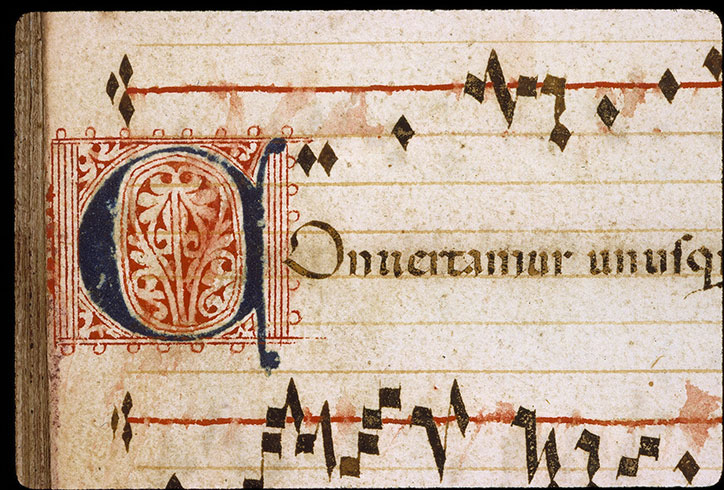 COnuertamur unusq